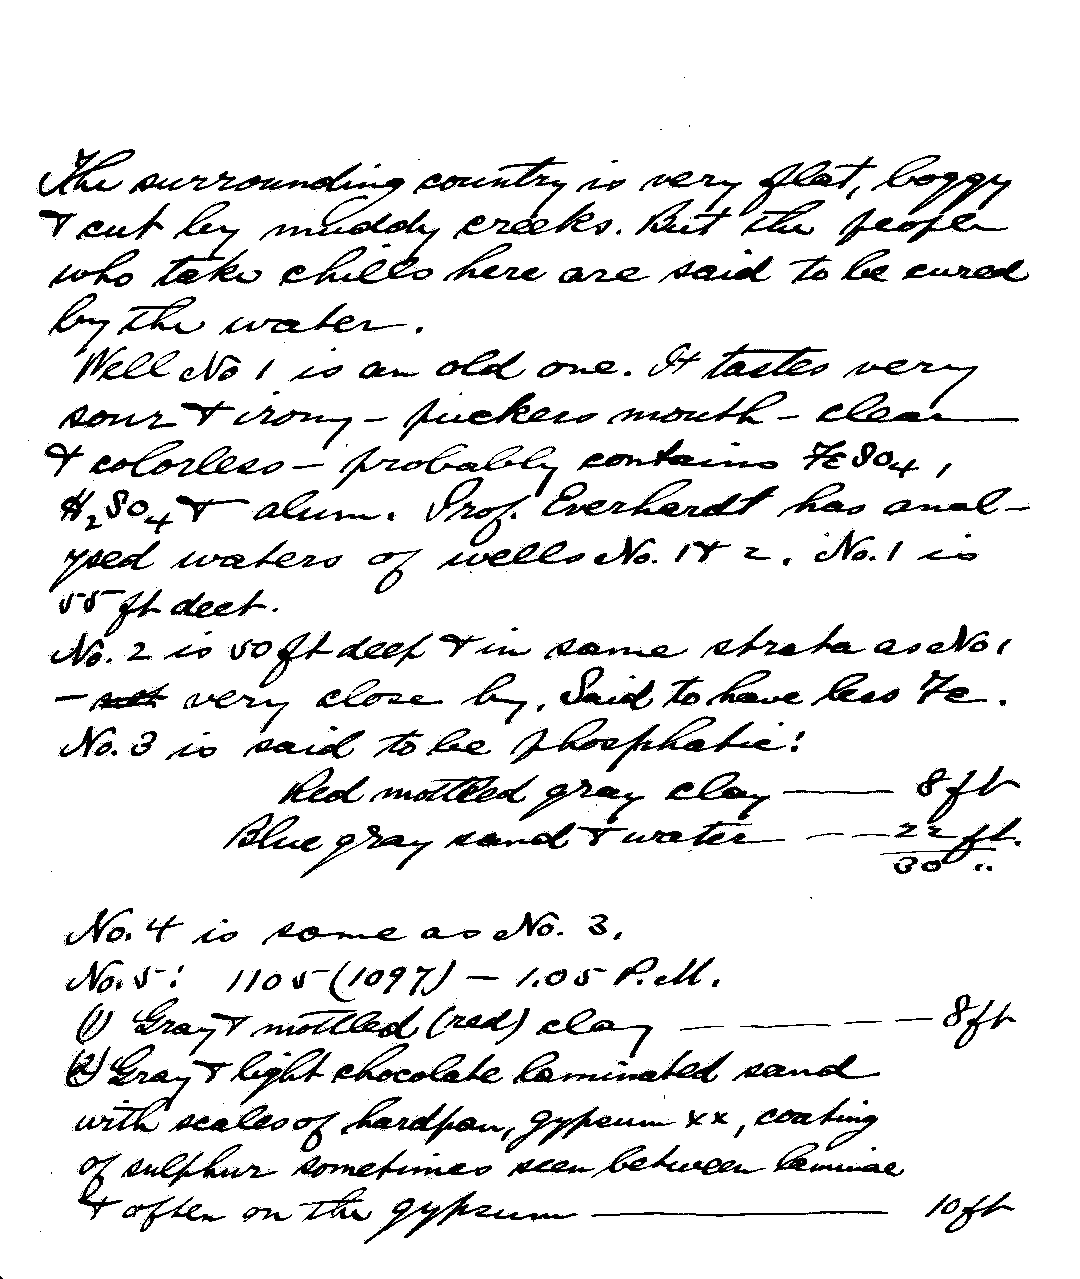 The surrounding country is very flat, boggy
& cut by muddy creeks. But the people
who take chills here are said to be cured
by the water.
Well No 1 is an old one. It tastes very
sour & irony - puckers mouth - clear
& colorless - probably contains FeSO4,
H2SO4 & alum. Prof. Everhardt has anal-
ysed waters of wells No. 1 & 2. No. 1 is
55 ft deet.
No. 2 is 50 ft deep & in same strata as No 1
- very close by. Said to have less Fe.
No. 3 is said to be phosphatic:
Red mottled gray clay —— 8 ft
Blue gray sand & water — — 22 ft.
30 "
No. 4 is same as No. 3.
No. 5: 1105 (1097) - 1.05 P.M.
(1) Gray & mottled (red) clay — — — — 8 ft
(2) Gray & light chocolate laminated sand
with scales of hardpan, gypsum xx, coating
of sulphur sometimes seen between laminae
& often on the gypsum ———— 10 ft